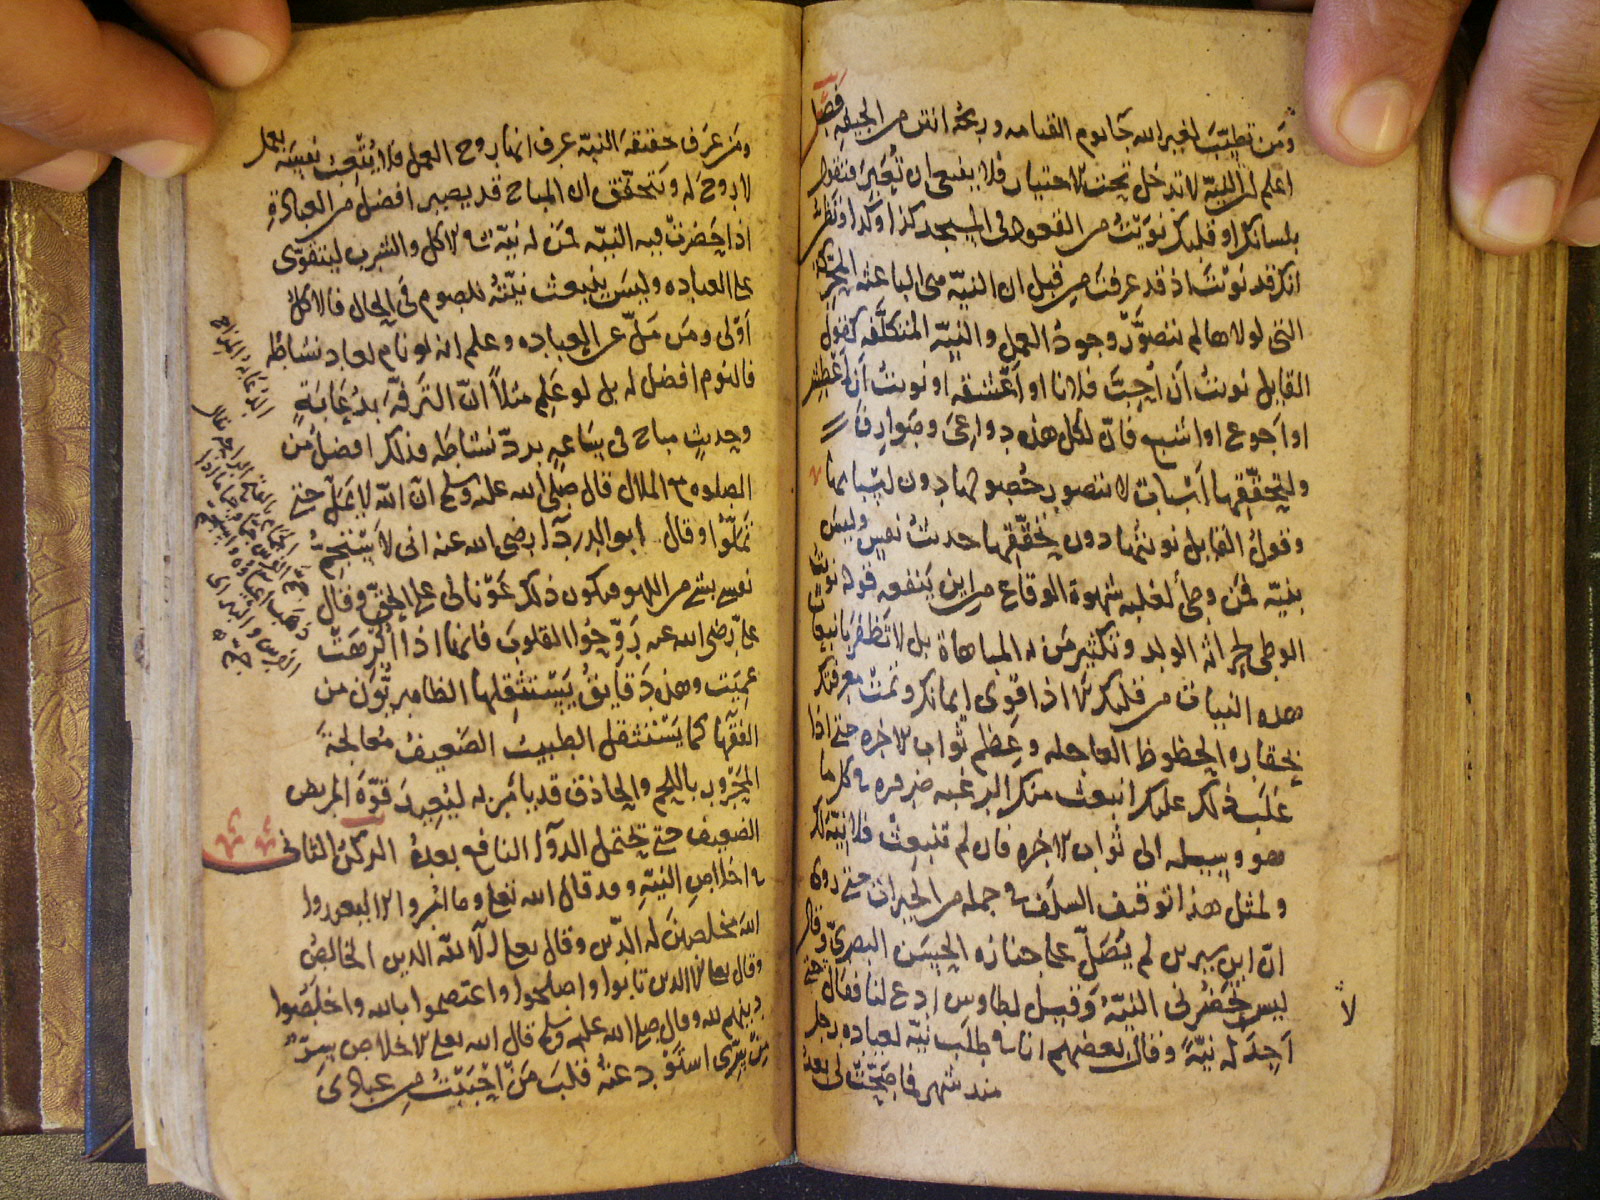 ومن تطيّبَ لغير الله جا يوم القيامه وريحُه انتن من الجيفه فصل
اعلم ان النيّة لا تدخل تحت الاختيار فلا ينبغي ان تُغترَّ فتقول
بلسانك او قلبك نويتُ من القعود في المسجد كذا وكذا وتظنّ
انك قد نويتَ اذ قد عرفتَ من قبل ان النيّة هي الباعثه المحركة
التي لولاها لم يتصوَّر وجودُ العمل والنيّة المتكلَّفه كقول
القايل نويتُ ان اُحِبَّ فلانا او اَعْشقه او نويتُ ان اَعْطش
او اَجوع او اشبع فانّ لكل هذه دواعيَ وصَوارِفَ
ولتحقّقِها اَسْبابٌ لا يتصور حُصولها دون اسبابها
وقولُ القايل نويتُها دون تحقّقِها حديثُ نفسٍ وليسَ
بنيّه فمن وطئَ لغلبه شهوة الوقاع من اين ينفعه قوله نويتُ
الوطى لحراثه الولد وتكثير مَن له المباهاة بل لا تَظفر بانبعاث
هذه النيات من قلبك الا اذا قوى ايمانك وتمّتْ معرفتك
بحقاره الحظوظ العاجله وعِظم ثواب الاخره حتى اذا
غلبَ ذلك عليك انبعث منك الرغبه ضروره في كل ما
هو وسيله الى ثواب الاخره فان لم تنبعِثْ فلا نيّةَ لك
ولمثل هذا توقّف السلَف في جمله من الخيرات حتى رُوِى
انّ ابن سيرين لم يُصَلِّ على جنازه الحسَن البصرىّ وقال
ليس تحضُرنى النيّة وَقيل لطاوس ادع لنا فقال حتى
اَجِدَ له نيّةً وقال بعضهم انا في طلَب نيّة لعياده رجل
منذ شهر فما صَحّتْ لى بعدُ
لا
ومَن عَرَف حقيقةَ النيّه عرف انها روح العمل فلا يُتْعِبُ نفسَه بعملٍ
لا روحَ له ويتحقّق ان المباح قد يصير افضلَ من العبادةِ
اذا حَضرتْ فيه النيّه فمَن له نيّة في الاكل والشرب ليتقوّى
على العباده وليسَ ينبعث نيّتُه للصوم في الحال فالاكلُ
اَوْلى ومَن مَلَّ عن العباده وعلم انه لو نام لعاد نشاطُه
فالنوم افضل له بل لو عَلِم مثلاً انّ التَرفّهَ بدُعَابَةٍ
وحديثٍ مباح في ساعهٍ يردّ نشاطَه فذلك افضلُ من
الصلوه مع الملال قال صلى الله عليه وسلم انّ الله لا يَمَلّ حتى
تَملّوا وقال ابو الدردآ رضي الله عنه انى لاَسْتَجِمُّ
نفسى بشى من اللهو فيكون ذلك عَوْنا لى على الحقّ وقال
علىّ رضى الله عنه رَوّحُوا القلوبَ فانها اذا اُكْرِهَتْ
عمِيَت وهذه دَقايقُ يَسْتثقِلها الظاهريّون من
الفقهآ كما يَسْتثقل الطبيبُ الضَعيفُ مُعالجةَ
المَحْرور باللحم والحاذق قد يأمر به ليُعِيدَ قوّةَ المريض
الضعيف حتى يحتمل الدوآ النافع بعدهُ الركنُ الثانى
في اخلاص النيّةِ وقد قال الله تعلى وما امروا الا ليعبدوا
اللهَ مخلصين له الدّين وقال تعلى اَلَا لله الدين الخالصُ
وقال تعالى الا الذين تابوا واصلحوا واعتصموا بالله واخلَصُوا
دينهم لله وقال صلى الله عليه وسلم قال الله تعلى الاخلاص سِرٌّ
مِنْ سِرّى استَوْدعتُه قلبَ مَن اَحْبَبْتُ من عبادى
الدعابة المزاح
الجمام بالفتح الراحه يقال
جمّ الفرس جما وجماما اذا
ذهب اعياؤه